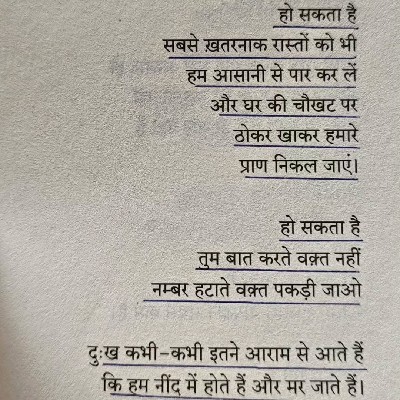 हो सकता है
सबसे ख़तरनाक रास्तों को भी
हम आसानी से पार कर लें
और घर की चौखट पर
ठोकर खाकर हमारे
प्राण निकल जाएं।
हो सकता है
तुम बात करते वक़्त नहीं
नम्बर हटाते वक़्त पकड़ी जाओ
दुःख कभी-कभी इतने आराम से आते हैं
कि हम नींद में होते हैं और मर जाते हैं।